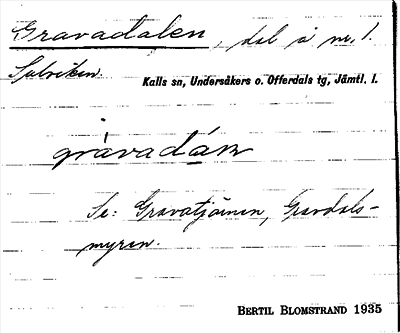 Gravadalen, dal å nr. 1.
Sulviken.
Kalls sn, Undersåkers o. Offerdals tg, Jämtl. l.
gràvadáḷn
Se: Gravatjärnen, Gravdals-
myren.
BERTIL BLOMSTRAND 1935